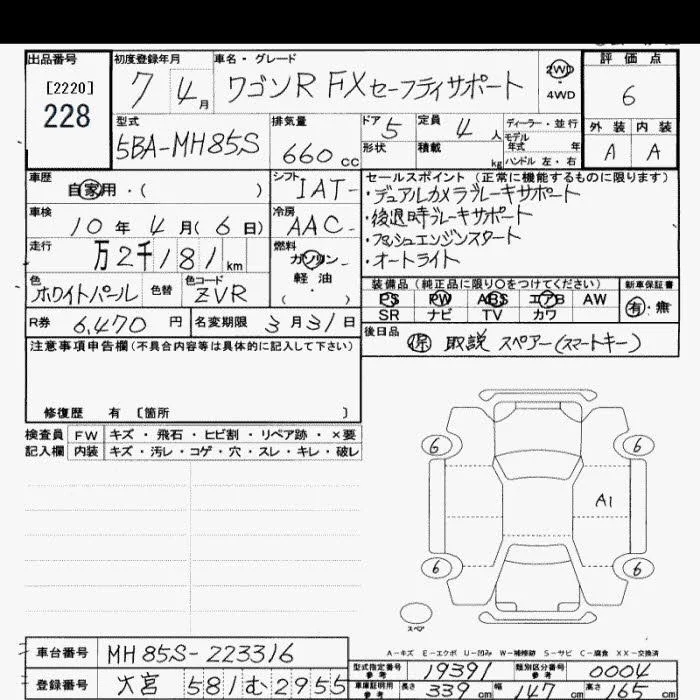 出品番号 初度登録年月 車名・グレード 2WD 評価点
[2220] 7年 4月 ワゴンR FXセーフティサポート 4WD 6
228
型式 排気量 ドア 5 定員 4人 ディーラー・並行 外装 内装
5BA-MH85S 660cc 形状 積載 kg モデル年式 年 A A
ハンドル 左・右
車歴 自家用・( ) シフト IAT- セールスポイント (正常に機能するものに限ります)
・デュアルカメラブレーキサポート
車検 10年 4月(6日) 冷房 AAC- ・後退時ブレーキサポート
・プッシュエンジンスタート
走行 万2千181km 燃料 ガソリン ・オートライト
軽油
・
( )
色 ホワイトパール 色替 色コード ZVR 装備品 (純正品に限り○をつけてください) 新車保証書
PS PW ABS エアB AW 有・無
SR ナビ TV カワ
R券 6,470円 名変期限 3月31日 後日品 保 取説 スペアー(スマートキー)
注意事項申告欄(不具合内容等は具体的に記入して下さい)
修復歴 有 〔箇所 〕
検査員 FW キズ・飛石・ヒビ割・リペア跡・×要
記入欄 内装 キズ・汚レ・コゲ・穴・スレ・キレ・破レ
6 6
A1
6 6
スペア
A-キズ E-エクボ U-凹み W-補修跡 S-サビ C-腐食 XX-交換済
車台番号 MH85S-223316 型式指定番号 参考 19391 類別区分番号 参考 0004
登録番号 大宮 581む2955 車庫証明用 参考 長さ 339cm 幅 147cm 高さ 165cm